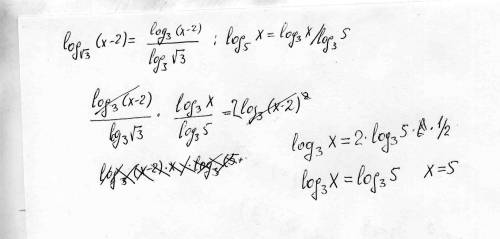 log√3 (x-2) = log3 (x-2) / log3 √3 ; log5 x = log3 x / log3 5
log3 (x-2) / log3 √3 · log3 x / log3 5 = 2 log3 (x-2)
log3 x = 2 · log3 5 · 1/2
log3 x = log3 5 x = 5